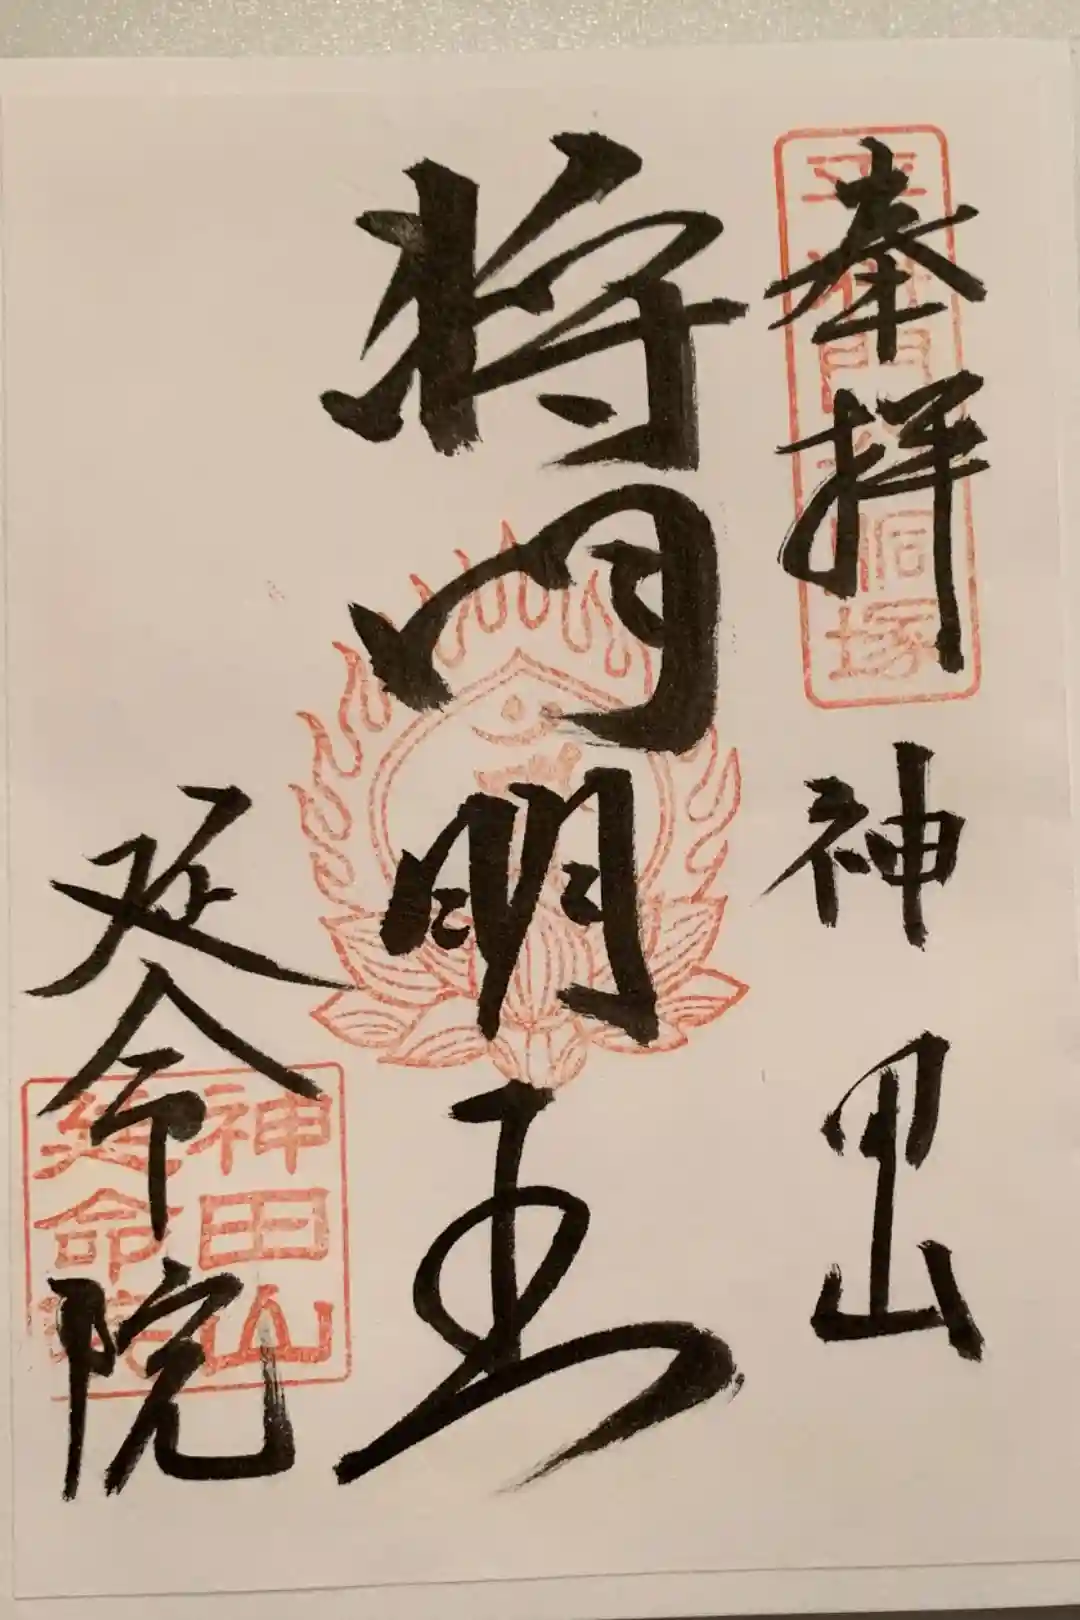 奉拝 神田山
将門明王
延命院
平将門 胴塚
神田山
延命院